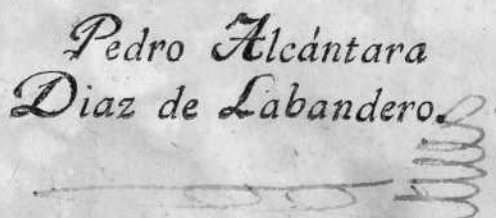 Pedro Alcántara
Diaz de Labandero.